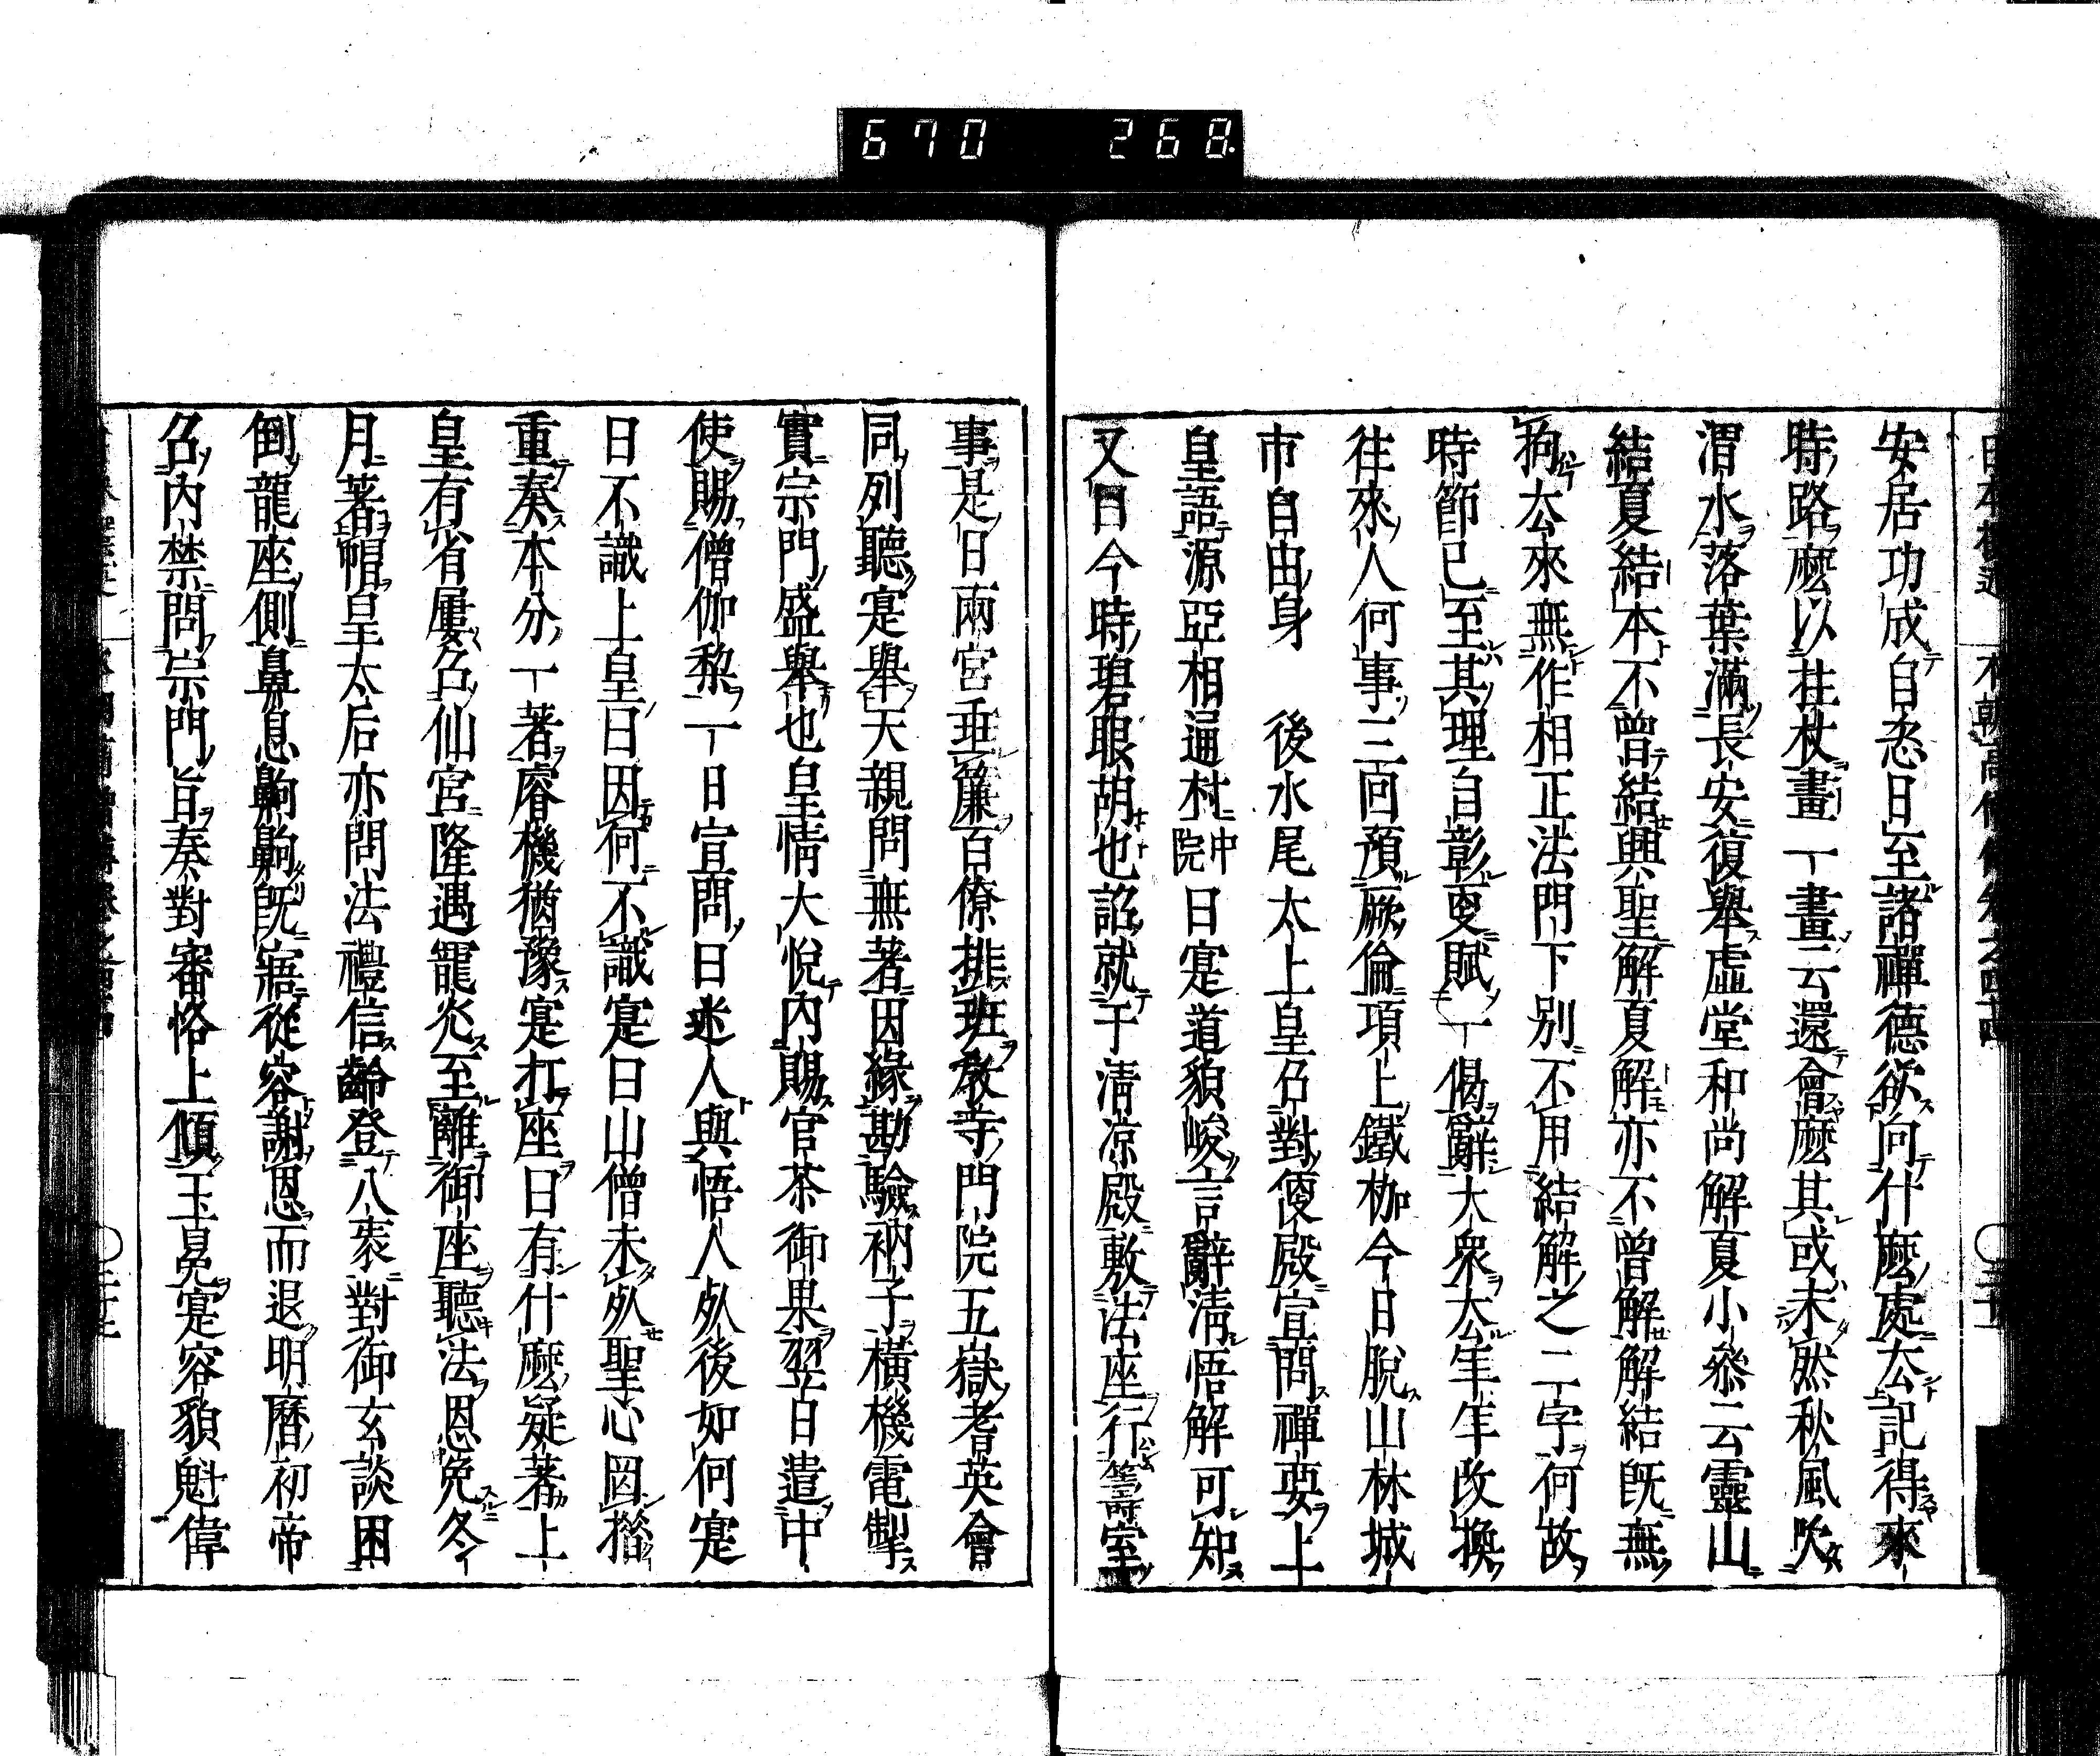 670 268
安居功成自恣日至諸禪德欲向什麽處去記得來
時路麽以拄杖畫一畫云還會麽其或未然秋風吹
渭水落葉滿長安復舉虛堂和尚解夏小參云靈山
結夏結本不曾結與聖解夏解亦不曾解解結既無
拘去來無作相正法門下別不用結解之二字何故
時節已至其理自彰更賦一偈辭大衆去年年改換
往來人何事三回預厥倫項上鐵枷今日脫山林城
市自由身 後水尾太上皇召對便殿宣問禪要上
皇語源亞相通村中院曰寔道貌峻言辭清悟解可知
又曰今時碧眼胡也詔就于清凉殿敷法座行籌室
事是日兩宮垂簾百僚排班教寺門院五嶽耆英會
同列聽寔舉天親問無著因緣勘驗衲子橫機電掣
實宗門盛舉也皇情大悅內賜官茶御果翌日遣中
使賜僧伽黎一日宣問曰迷人與悟人歿後如何寔
曰不識上皇曰因何不識寔曰山僧未歿聖心罔措
重奏本分一著睿機猶豫寔打座曰有什麽疑著上
皇有省屢召仙宮隆遇寵光至離御座聽法恩免冬
月著帽皇太后亦問法禮信齡登八袠對御玄談困
倒龍座側鼻息齁齁既寤從容謝恩而退明曆初帝
召內禁問宗門旨奏對審恪上傾玉冕寔容貌魁偉